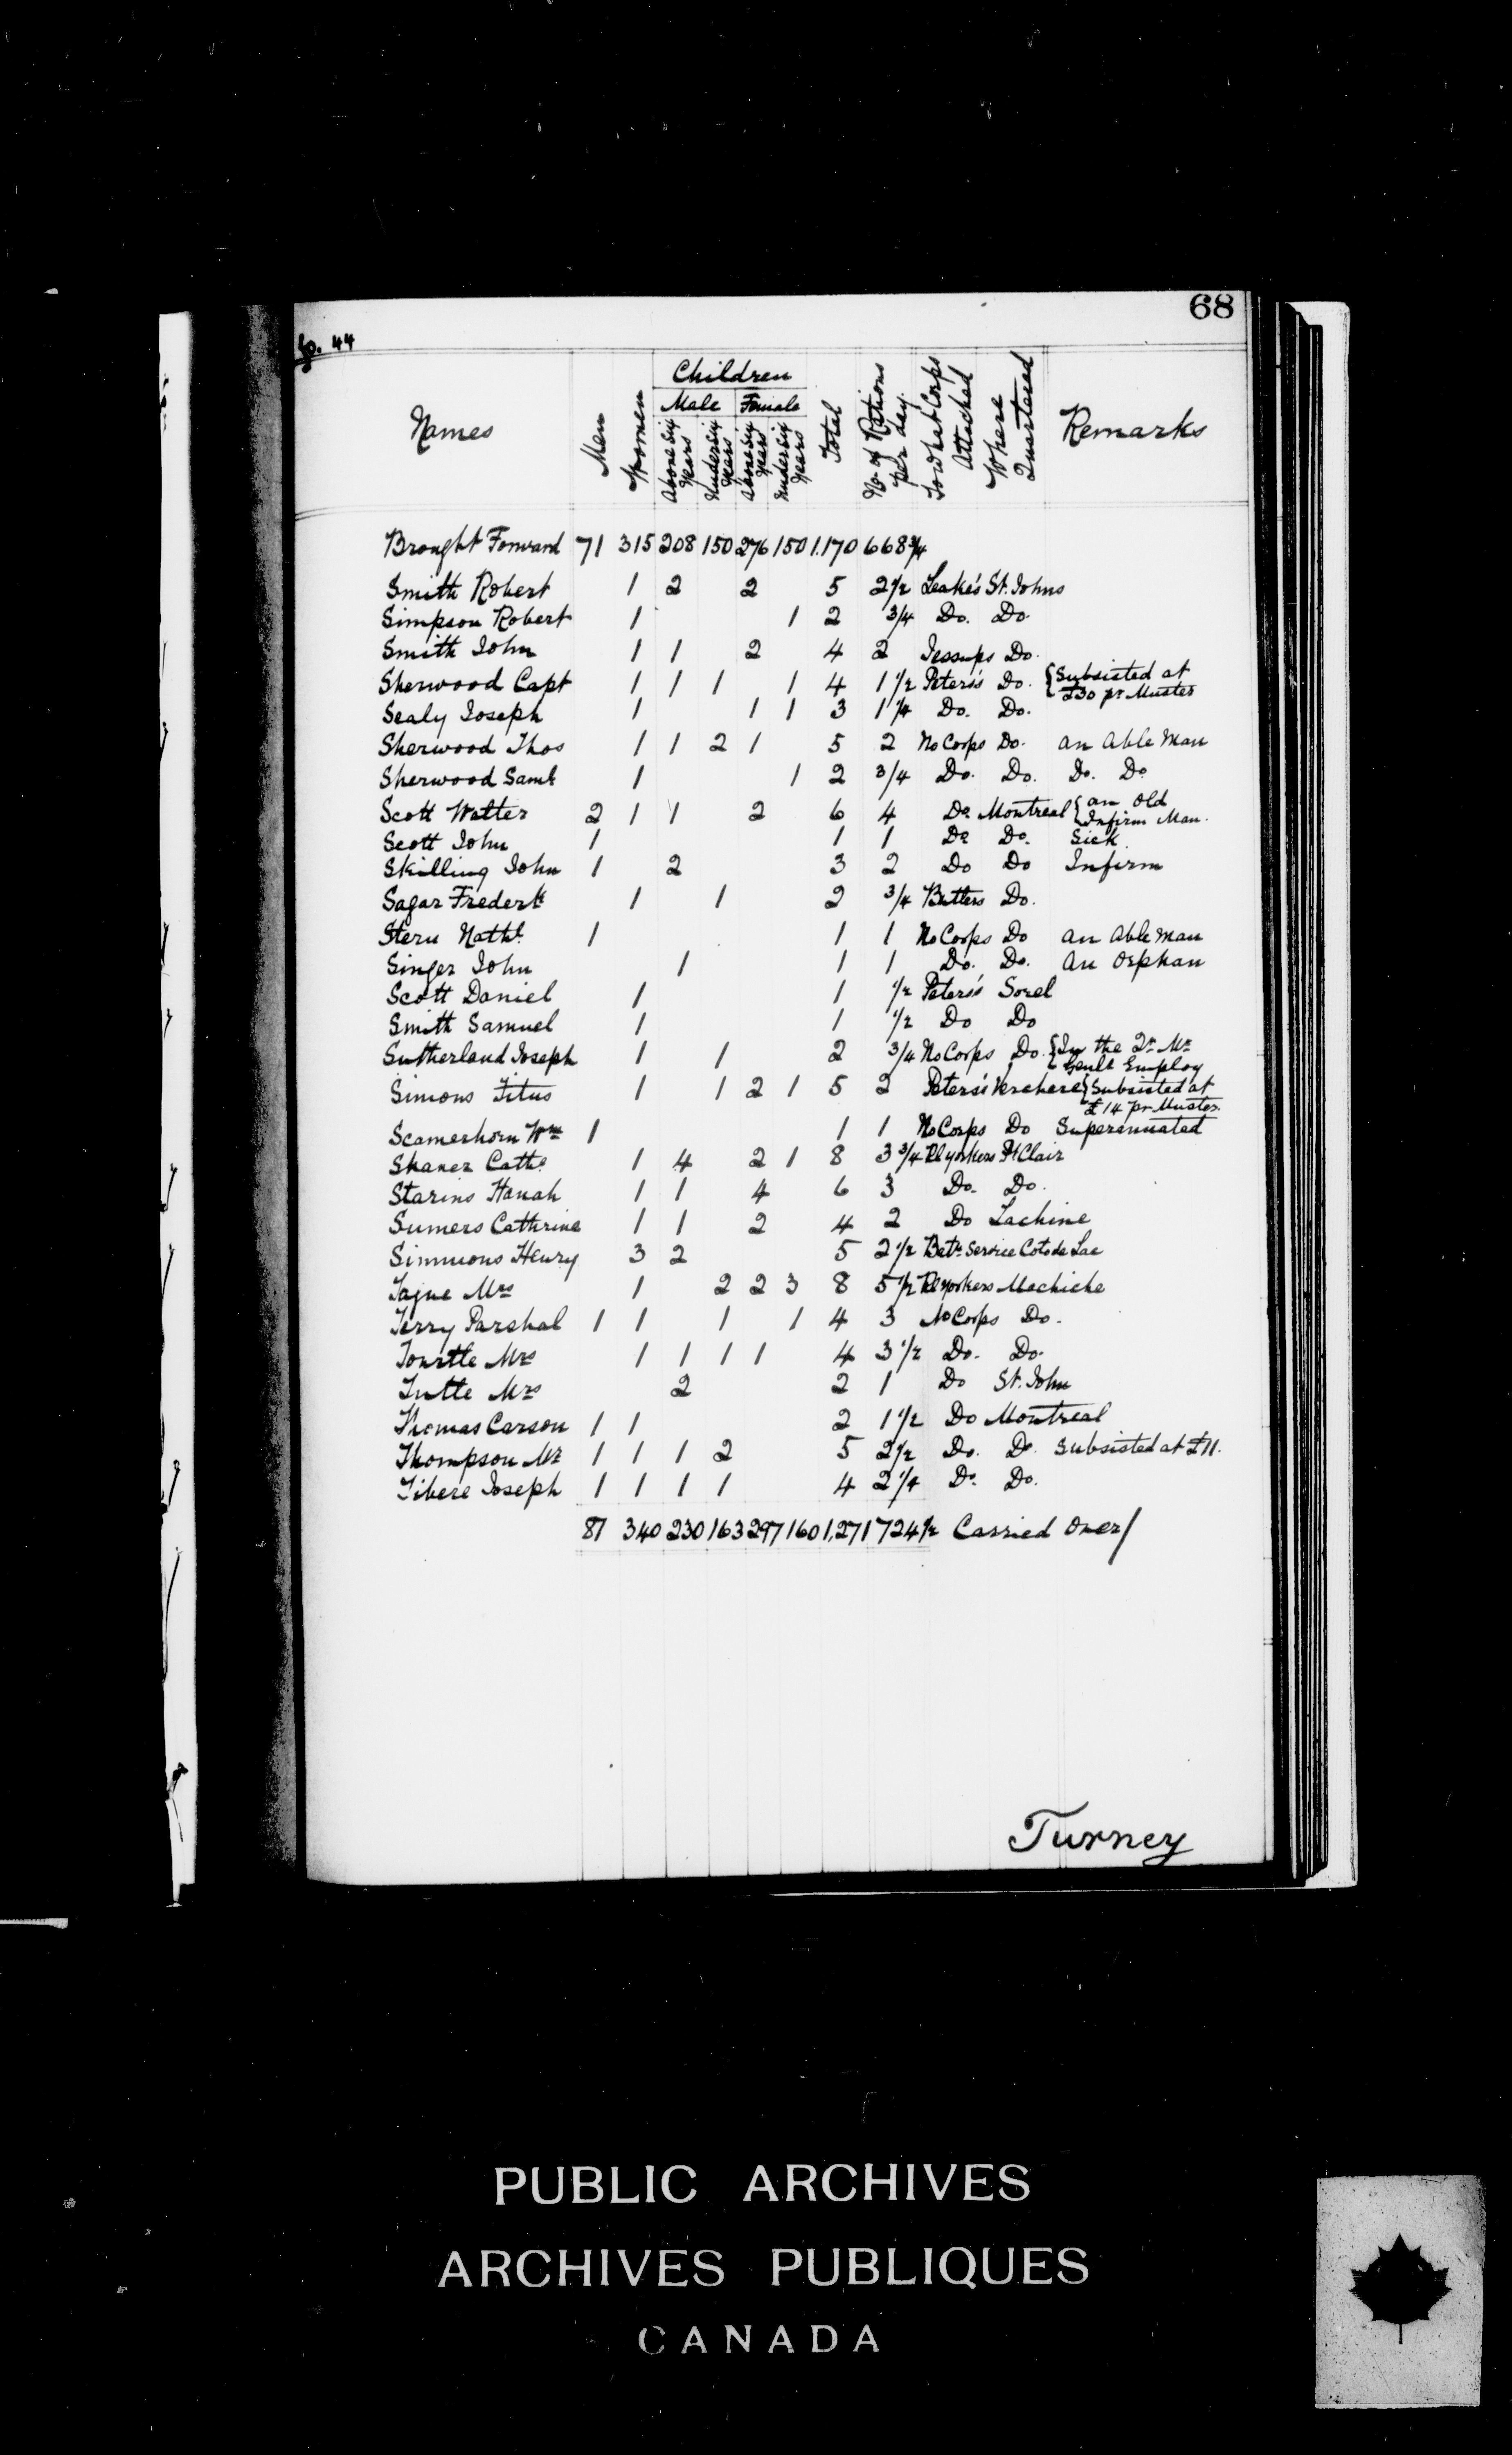 68
p. 44
Names Men Women Children Male Above Six Years Under Six Years Female Above Six Years Under Six Years Total No. of Rations per day To what Corps Attached Where Quartered Remarks
Brought Forward 71 315 208 150 276 150 1.170 668 3/4
Smith Robert 1 2 2 5 2 1/2 Leake's St. Johns
Simpson Robert 1 1 2 3/4 Do. Do.
Smith John 1 1 2 4 2 Jessups Do.
Sherwood Capt 1 1 1 1 4 1 1/2 Peters's Do. {Subsisted at £30 pr. Muster
Sealy Joseph 1 1 1 3 1 1/4 Do. Do.
Sherwood Thos 1 1 2 1 5 2 No Corps Do. an Able Man
Sherwood Saml 1 1 2 3/4 Do. Do. Do. Do
Scott Walter 2 1 1 2 6 4 Do. Montreal {an Old Infirm Man.
Scott John 1 1 1 Do Do. Sick
Skilling John 1 2 3 2 Do Do Infirm
Sagar Frederk 1 1 2 3/4 Butlers Do.
Stern Nathl. 1 1 1 No Corps Do an Able man
Singer John 1 1 1 Do. Do. an Orphan
Scott Daniel 1 1 1/2 Peters's Sorel
Smith Samuel 1 1 1/2 Do Do
Sutherland Joseph 1 1 2 3/4 No Corps Do. {In the Qr. Mr. Genls Employ
Simons Titus 1 1 2 1 5 2 Peters's Verchere {Subsisted at £14 pr. Muster.
Scamerhorn Wm 1 1 1 No Corps Do Superanuated
Shaner Cathe. 1 4 2 1 8 3 3/4 Rl yorkers Pt Clair
Starins Hanah 1 1 4 6 3 Do. Do.
Sumers Cathrine 1 1 2 4 2 Do Lachine
Simmons Henry 3 2 5 2 1/2 Betr. Service Coto de Lac
Tajne Mrs 1 2 2 3 8 5 1/2 Rl yorkers Machiche
Terry Parshal 1 1 1 1 4 3 No Corps Do.
Tourtle Mrs 1 1 1 1 4 3 1/2 Do. Do.
Tutte Mrs 2 2 1 Do St. John
Thomas Carson 1 1 2 1 1/2 Do Montreal
Thompson Mr 1 1 1 2 5 2 1/2 Do. Do. Subsisted at £11.
Tibere Joseph 1 1 1 1 4 2 1/4 Do. Do.
87 340 230 163 297 160 1,271 724 1/2 Carried Over/
Turney
PUBLIC ARCHIVES
ARCHIVES PUBLIQUES
CANADA